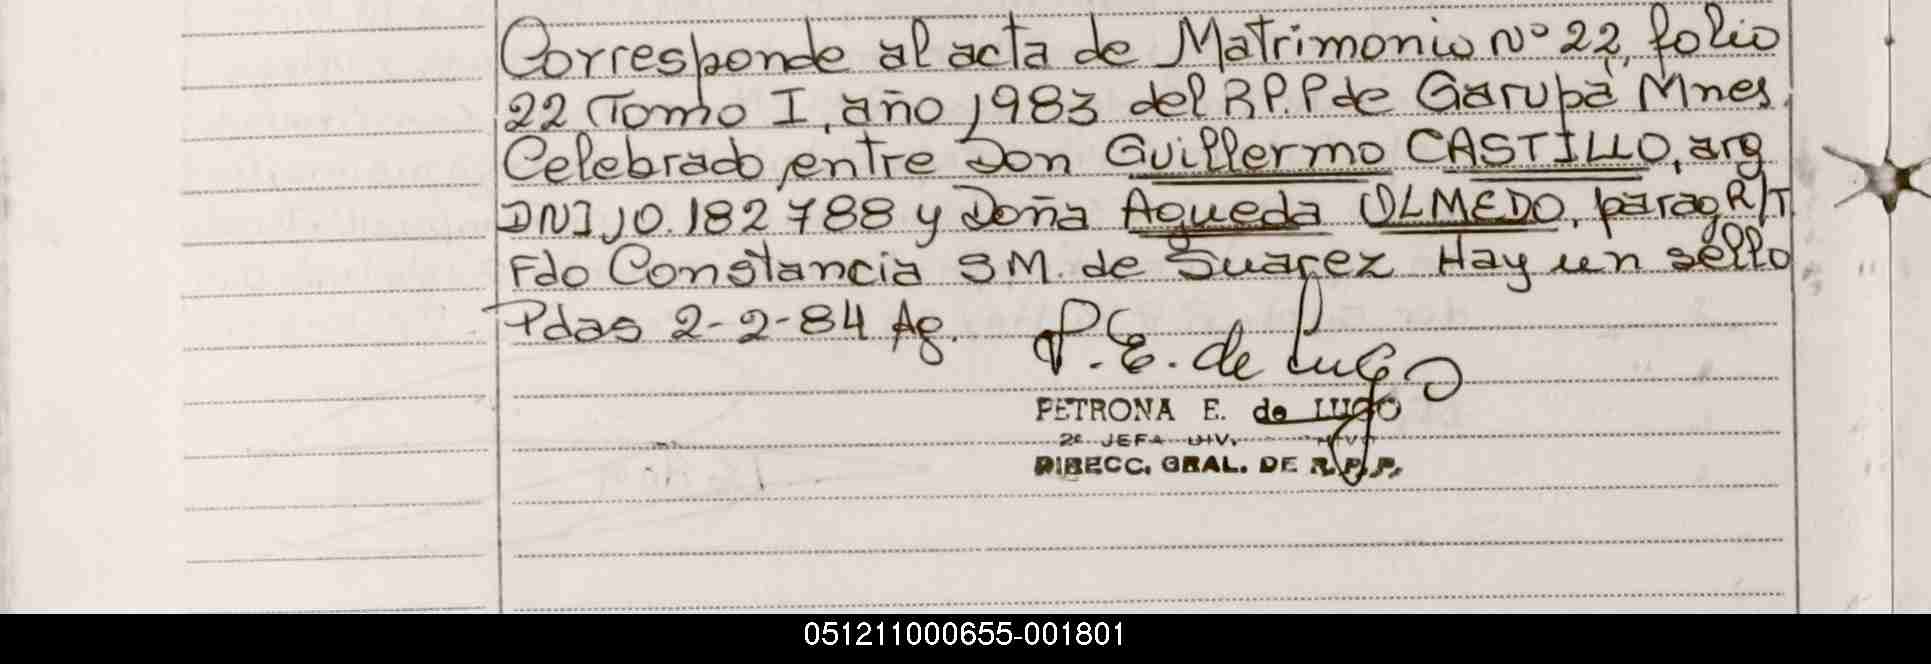 Corresponde al acta de Matrimonio Nº 22, folio
22 Tomo I, año 1983 del R.P.P de Garupá Mnes.
Celebrado, entre Don Guillermo CASTILLO, arg
DNI 10.182 788 y Doña Agueda OLMEDO, parag R/T
Fdo Constancia S M. de Suarez Hay un sello
Pdas 2-2-84 Ag.
P. E. de Lugo
PETRONA E. de LUGO
2ª JEFA DIV.
DIRECC. GRAL. DE R.P.P.
051211000655-001801